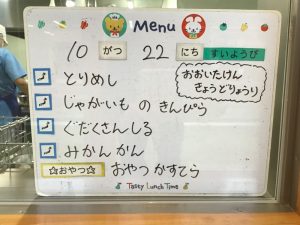 Menu
10 がつ 22 にち すいようび
とりめし
おおいたけん
きょうどりょうり
じゃがいも の きんぴら
ぐだくさんしる
みかんかん
☆おやつ☆ おやつ かすてら
Tasty Lunch Time